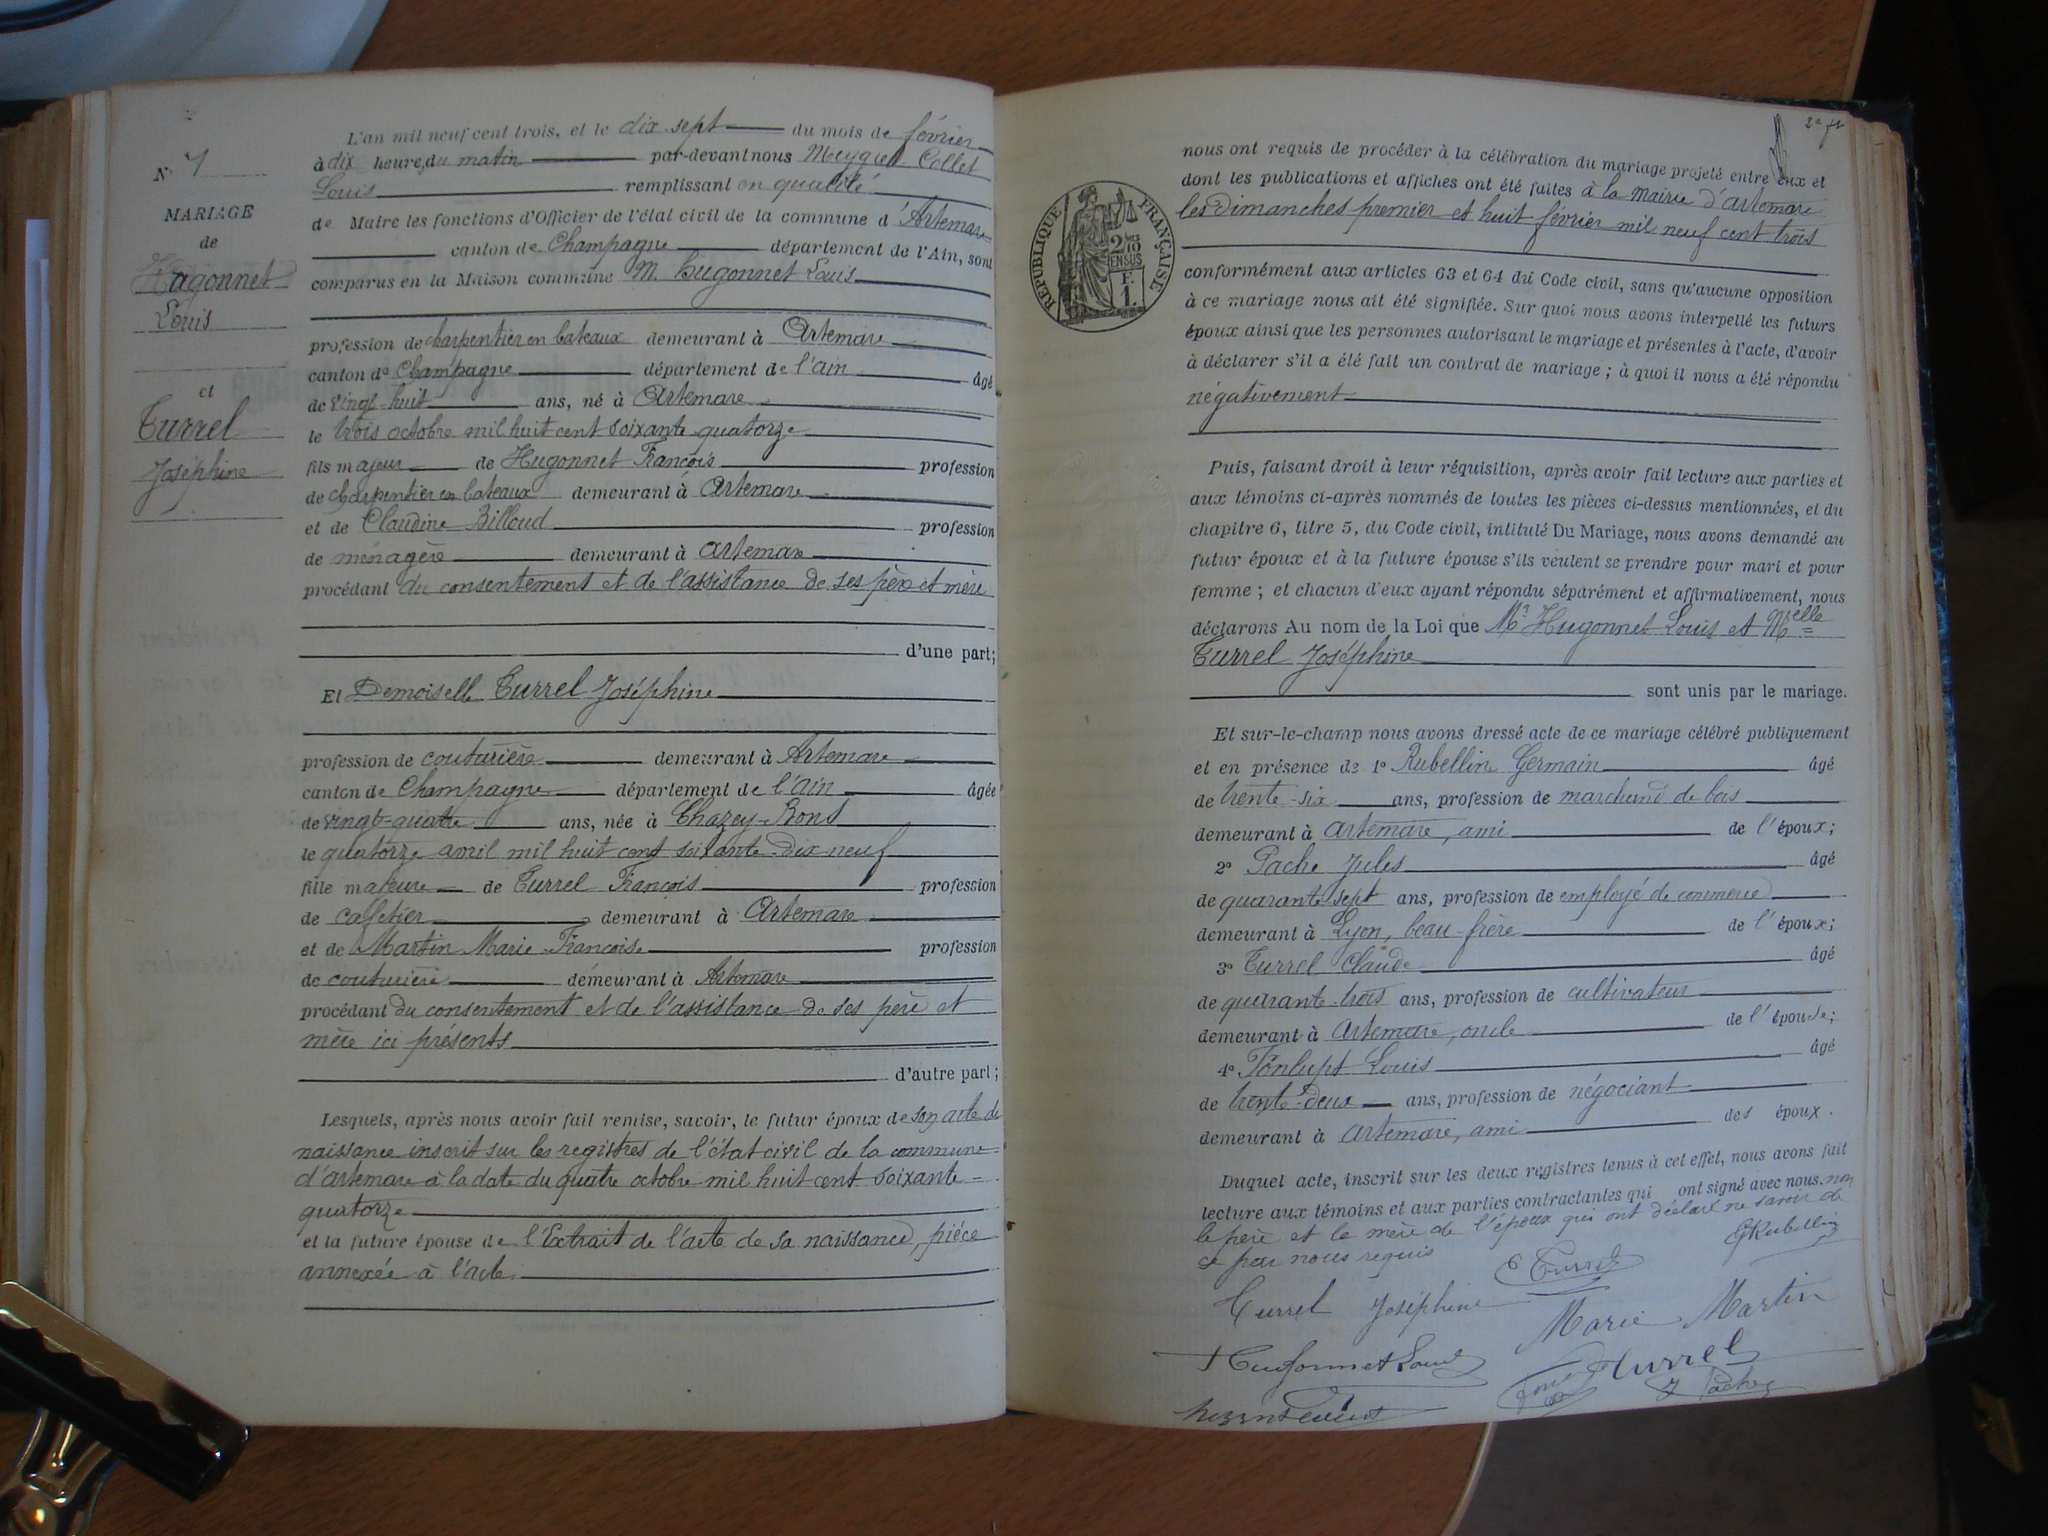 N° 7
MARIAGE
de
Hugonnet
Louis
et
Turrel
Joséphine
L'an mil neuf cent trois, et le dix sept du mois de février
à dix heure, du matin par-devant nous Meygret Collet
Louis remplissant en qualité
de Maire les fonctions d'Officier de l'état civil de la commune d'Artemare
canton de Champagne département de l'Ain, sont
comparus en la Maison commune M. Hugonnet Louis
profession de charpentier en bateaux demeurant à Artemare
canton de Champagne département de l'ain âgé
de vingt-huit ans, né à Artemare
le trois octobre mil huit cent soixante quatorze
fils majeur de Hugonnet François profession
de charpentier en bateaux demeurant à Artemare
et de Claudine Billoud profession
de ménagère demeurant à Artemare
procédant du consentement et de l'assistance de ses père et mère
d'une part;
Et Demoiselle Turrel Joséphine
profession de couturière demeurant à Artemare
canton de Champagne département de l'ain âgée
de vingt-quatre ans, née à Chazey-Bons
le quatorze avril mil huit cent soixante-dix-neuf
fille majeure de Turrel François profession
de caffetier demeurant à Artemare
et de Martin Marie-Françoise profession
de couturière demeurant à Artemare
procédant du consentement et de l'assistance de ses père et
mère ici présents
d'autre part;
Lesquels, après nous avoir fait remise, savoir, le futur époux de son acte de
naissance inscrit sur les registres de l'état civil de la commune
d'artemare à la date du quatre octobre mil huit cent soixante
quatorze
et la future épouse de l'Extrait de l'acte de sa naissance, pièce
annexée à l'acte
RÉPUBLIQUE FRANÇAISE
2/10
EN SUS
F.
1.
nous ont requis de procéder à la célébration du mariage projeté entre eux et
dont les publications et affiches ont été faites à la mairie d'artemare
les Dimanches premier et huit février mil neuf cent trois
conformément aux articles 63 et 64 du Code civil, sans qu'aucune opposition
à ce mariage nous ait été signifiée. Sur quoi nous avons interpellé les futurs
époux ainsi que les personnes autorisant le mariage et présentes à l'acte, d'avoir
à déclarer s'il a été fait un contrat de mariage ; à quoi il nous a été répondu
négativement
Puis, faisant droit à leur réquisition, après avoir fait lecture aux parties et
aux témoins ci-après nommés de toutes les pièces ci-dessus mentionnées, et du
chapitre 6, titre 5, du Code civil, intitulé Du Mariage, nous avons demandé au
futur époux et à la future épouse s'ils veulent se prendre pour mari et pour
femme ; et chacun d'eux ayant répondu séparément et affirmativement, nous
déclarons Au nom de la Loi que Mr Hugonnet Louis et Melle
Turrel Joséphine
sont unis par le mariage.
Et sur-le-champ nous avons dressé acte de ce mariage célébré publiquement
et en présence de 1° Rubellin Germain âgé
de trente-six ans, profession de marchand de bois
demeurant à artemare, ami de l'époux;
2° Pache Jules âgé
de quarante sept ans, profession de employé de commerce
demeurant à Lyon, beau-frère de l'époux;
3° Turrel Claude âgé
de quarante-trois ans, profession de cultivateur
demeurant à artemare, oncle de l'épouse;
4° Fonlupt Louis âgé
de trente-deux ans, profession de négociant
demeurant à artemare, ami des époux.
Duquel acte, inscrit sur les deux registres tenus à cet effet, nous avons fait
lecture aux témoins et aux parties contractantes qui ont signé avec nous, non
le père et la mère de l'époux qui ont déclaré ne savoir de
ce par nous requis
GRubellin
C Turrel
Turrel Joséphine
Marie Martin
Hugonnet Louis
Turrel
J Pache